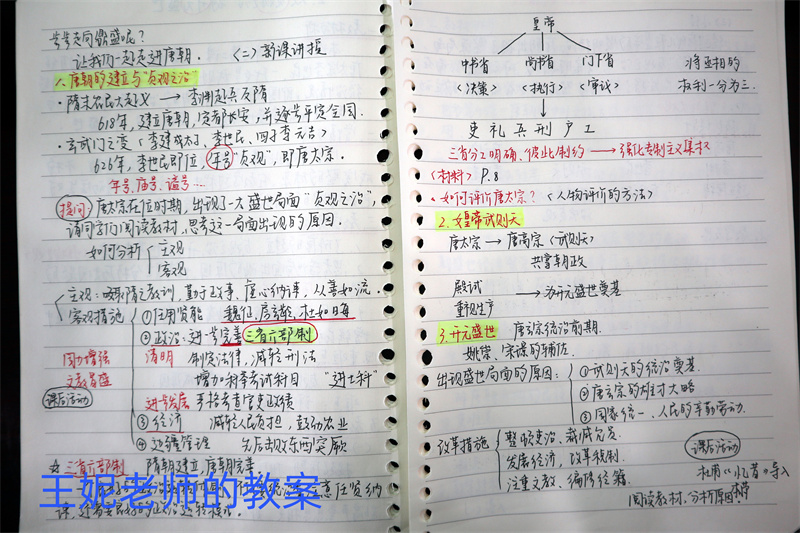 让我们一起走进唐朝. (二)新课讲授
1. 唐朝的建立与"贞观之治"
·隋末农民大起义 → 李渊起兵反隋
618年, 建立唐朝, 定都长安, 并逐步平定全国.
·玄武门之变 (李建成太子、李世民、四子李元吉)
626年, 李世民即位, 年号"贞观", 即唐太宗.
年号、庙号、谥号...
提问: 唐太宗在位时期, 出现了一大盛世局面"贞观之治",
请同学们阅读教材, 思考这一局面出现的原因.
如何分析 主观
客观
主观: 吸取隋亡教训, 勤于政事, 虚心纳谏, 从善如流.
客观措施 ①任用贤能 魏征, 房玄龄, 杜如晦
②政治: 进一步完善 三省六部制
国力增强 清明 制定法律, 减轻刑法
文教昌盛 增加科举考试科目 "进士科"
课后活动 进步发展 严格考查官吏政绩
③经济 减轻人民负担, 鼓励农业
④边疆管理 先后击败东西突厥
☆ 三省六部制 隋朝建立, 唐朝完善
王妮老师的教案
皇帝
中书省 尚书省 门下省 将丞相的
<决策> <执行> <审议> 权利一分为三.
吏 礼 兵 刑 户 工
三省分工明确、彼此制约 → 强化专制主义集权
<材料> P.8
<如何评价唐太宗? <人物评价的方法>
2. 女皇帝武则天
唐太宗 → 唐高宗 <武则天>
共掌朝政
殿试 → 为开元盛世奠基
重视生产
3. 开元盛世 唐玄宗统治前期.
姚崇、宋璟的辅佐.
出现盛世局面的原因: ①武则天的统治奠基.
②唐玄宗的雄才大略
③国家统一、人民的辛勤劳动.
改革措施 整顿吏治, 裁减冗员.
发展经济, 改革税制.
注重文教、编修经籍.
课后活动
杜甫《忆昔》导入
阅读教材, 分析原因